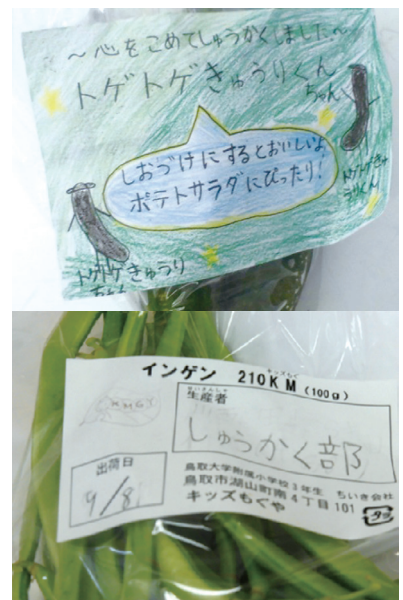 ～心をこめてしゅうかくしました～
トゲトゲきゅうりくん
ちゃん
しおづけにするとおいしいよ
ポテトサラダにぴったり！
トゲトゲきゅ
うりくん
トゲトゲきゅうり
ちゃん
インゲン 210KM（100g）
キッズもぐ
せいさんしゃ
生産者
しゅうかく部
出荷日
9/8
鳥取大学附属小学校3年生 ちいき会社
鳥取市湖山町南4丁目101
キッズもぐや